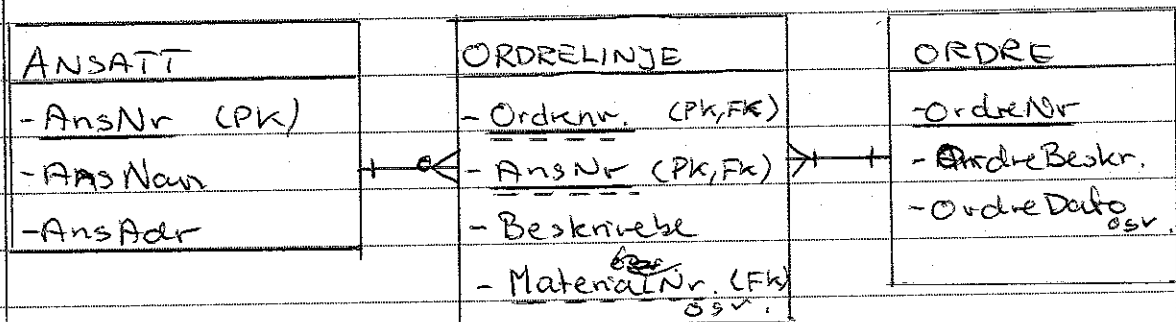 ANSATT
- AnsNr (PK)
- AnsNavn
- AnsAdr
ORDRELINJE
- Ordrenr. (PK,FK)
- AnsNr (PK,FK)
- Beskrivelse
- MaterialNr. (FK)
osv.
ORDRE
- OrdreNr
- OrdreBeskr.
- OrdreDato
osv.